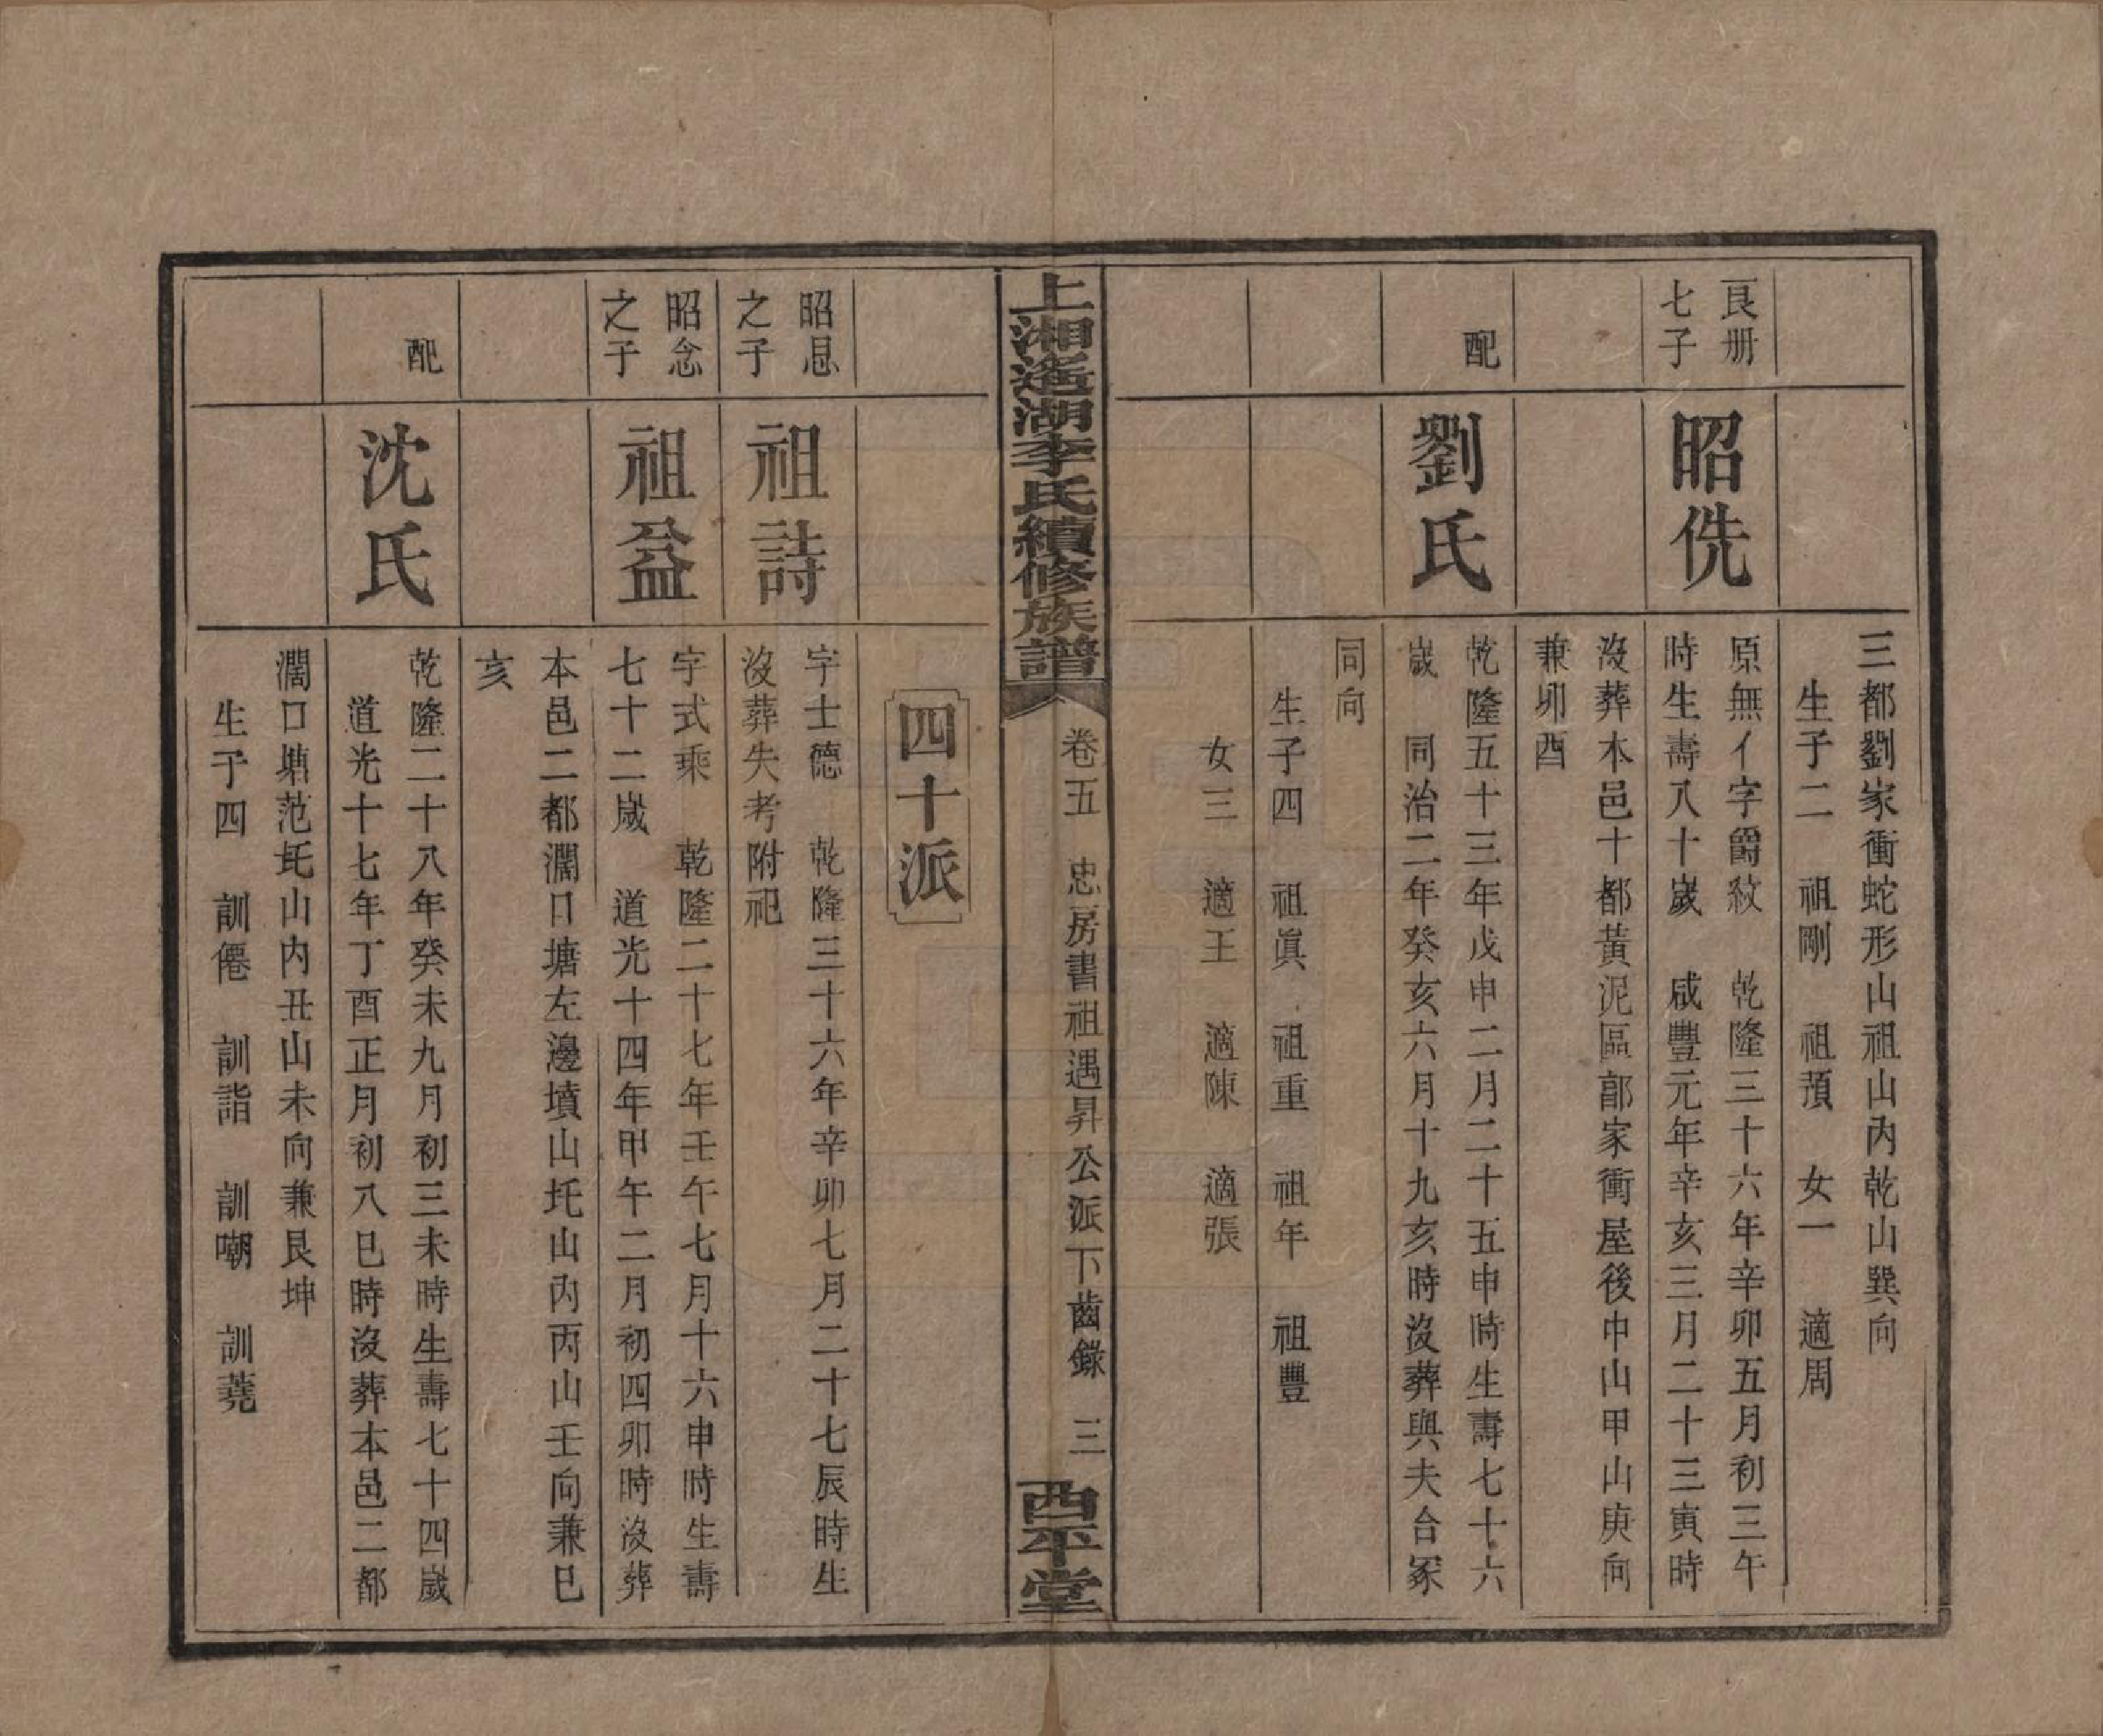 三都劉家衝蛇形山祖山內乾山巽向
生子二　祖剛　祖蘋　女一　適周
良冊
七子
昭侁
原無亻字爵紋　乾隆三十六年辛卯五月初三午
時生壽八十歲　咸豐元年辛亥三月二十三寅時
沒葬本邑十都黃泥區部家衝屋後中山甲山庚向
兼卯酉
配
劉氏
乾隆五十三年戊申二月二十五申時生壽七十六
歲　同治二年癸亥六月十九亥時沒葬與夫合冢
同向
生子四　祖眞　祖重　祖年　祖豐
女三　適王　適陳　適張
上湘遙湖李氏續修族譜
卷五　忠房書祖遇昇公派下齒錄　三
西平堂
四十派
昭恳
之子
祖詩
字士德　乾隆三十六年辛卯七月二十七辰時生
沒葬失考附祀
昭念
之子
祖益
字式乘　乾隆二十七年壬午七月十六申時生壽
七十二歲　道光十四年甲午二月初四卯時沒葬
本邑二都濶口塘左邊墳山圫山內丙山壬向兼巳
亥
配
沈氏
乾隆二十八年癸未九月初三未時生壽七十四歲
道光十七年丁酉正月初八巳時沒葬本邑二都
濶口塘范圫山內丑山未向兼艮坤
生子四　訓僊　訓詣　訓嘲　訓蕘